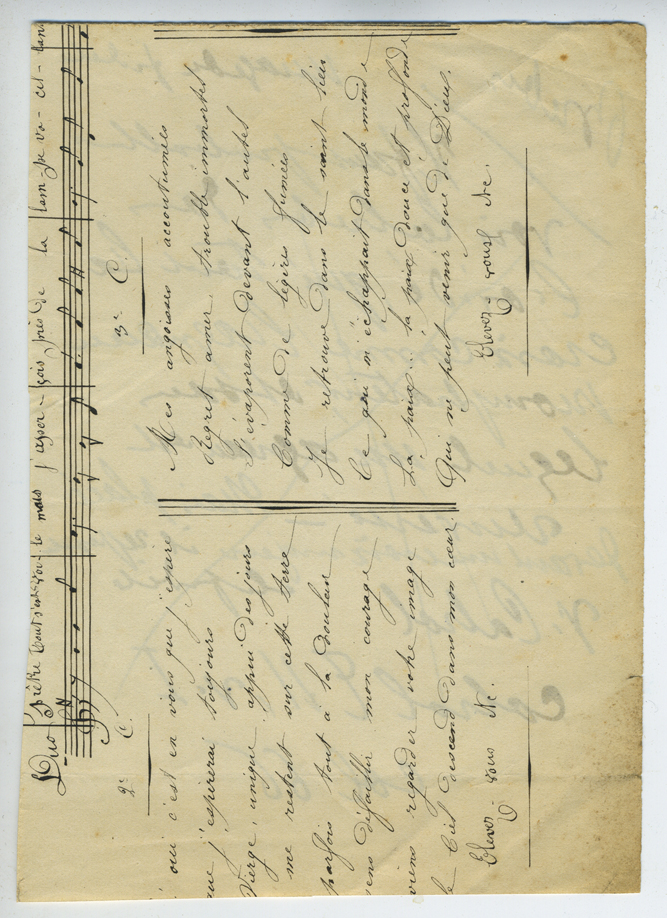 Duo
prêtre Tout mais j'aper - çois près de la lam - pe va - cil - lan
2e C.
oui c'est en vous que j'espère
que j'espérerai toujours
Vierge, unique appui des jours
me restent sur cette terre
parfois tout à la douleur
sens défaillir mon courage
viens regarder votre image
le Ciel descend dans mon cœur.
Elevez-vous &c.
3e C.
Mes angoisses accoutumées
Regret amer trouble immortel
S'évaporent devant l'autel
Comme de légères fumées
Je retrouve dans le saint lieu
Ce qui m'échappait dans le monde
La paix... la paix douce et profonde
Qui ne peut venir que de Dieu.
Elevez-vous &c.